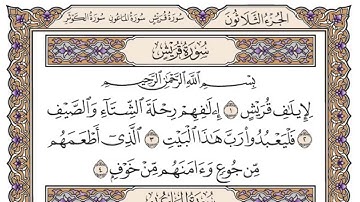 الجزء الثلاثون سورة قريش سورة الماعون سورة الكوثر
سُورَةُ قُرَيْشٍ
بِسْمِ ٱللَّهِ ٱلرَّحْمَٰنِ ٱلرَّحِيمِ
لِإِيلَٰفِ قُرَيْشٍ ۝١ إِۦلَٰفِهِمْ رِحْلَةَ ٱلشِّتَآءِ وَٱلصَّيْفِ
۝٢ فَلْيَعْبُدُوا۟ رَبَّ هَٰذَا ٱلْبَيْتِ ۝٣ ٱلَّذِىٓ أَطْعَمَهُم
مِّن جُوعٍ وَءَامَنَهُم مِّنْ خَوْفٍۭ ۝٤
سُورَةُ الْمَاعُونِ